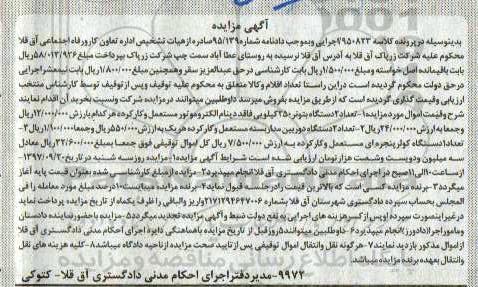 آگهی مزایده
بدینوسیله در پرونده کلاسه 950823/اجرایی و بموجب دادنامه شماره 95/139 صادره از هیات تشخیص اداره تعاون کار و رفاه اجتماعی آق قلا
محکوم علیه شرکت زرپاک آق قلا به آدرس آق قلا نرسیده به روستای عطا آباد سمت چپ شرکت زرپاک بپرداخت مبلغ 58/013/926 ریال
بابت باقیمانده اصل خواسته و مبلغ 1/500/000 ریال بابت کارشناسی در حق عبدالعزیز سقر و همچنین مبلغ 1/800/000 ریال بابت نیمعشر اجرایی
در حق دولت محکوم گردیده است در این راستا تعداد اقلام و کالا متعلق به محکوم علیه توقیف و پس از توقیف توسط کارشناس منتخب
ارزیابی و قیمت گذاری گردیده است که از طریق مزایده بفروش میرسد داوطلبین میتوانند در مزایده شرکت و نسبت بخرید آن اقدام نمایند
شرح و قیمت اموال مورد مزایده: 1-تعداد 2 دستگاه بتونر 350 کیلویی فاقد دینام الکتروموتور مستعمل و کارکرده هر کدام بارزش 12/000/000 ریال
و جمعا به ارزش 24/000/000 ریال 2-تعداد 2 دستگاه دوربین مداربسته مستعمل و کارکرده هر یک به ارزش 550/000 ریال و جمعا 1/100/000 ریال 3-
تعداد 1 دستگاه کولر پنجره ای مستعمل و کارکرده به ارزش 7/500/000 ریال کل اموال توقیفی فوق جمعا بمبلغ 32/600/000 ریال معادل
سه میلیون و دویست و شصت هزار تومان ارزیابی شده است شرایط آگهی مزایده: 1-مزایده روز سه شنبه در تاریخ 1397/09/20
از ساعت 10 الی 11 صبح در اجرای احکام مدنی دادگستری آق قلا انجام میپذیرد 2-مزایده از مبلغ کارشناسی شده بعنوان قیمت پایه آغاز
میگردد 3-برنده مزایده کسی است که بالاترین قیمت را در جلسه قبول نماید 4-برنده مزایده میبایست 10 درصد مبلغ مورد معامله را فی
المجلس بحساب سپرده دادگستری شهرستان آق قلا بشماره 2171294647006 واریز و الباقی را ظرف یکماه از تاریخ مزایده پرداخت نماید
در غیر اینصورت سپرده او پس از کسر هزینه های اجرایی به نفع دولت ضبط و آگهی مزایده تجدید میگردد 5-مزایده با حضور نماینده دادستان
و مامور اجرا (دادورز) انجام میپذیرد 6-داوطلبین میتوانند 5 روز قبل از تاریخ مزایده با هماهنگی دایره اجرای احکام مدنی دادگستری آق قلا
از اموال مذکور بازدید نمایند 7-هر گونه نقل و انتقال اموال توقیفی پس از تایید صحت مزایده از ناحیه دادگاه میباشد 8-کلیه هزینه های نقل
و انتقال بعهده برنده مزایده میباشد.
9972-مدیر دفتر اجرای احکام مدنی دادگستری آق قلا- کتوکی